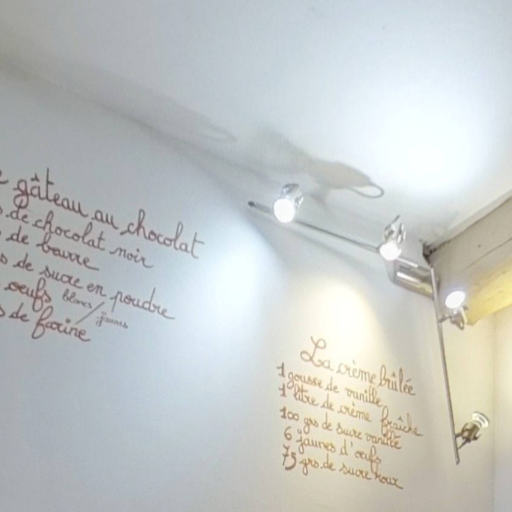 gâteau au chocolat
de chocolat noir
de beurre
de sucre en poudre
oeufs blancs/jaunes
de farine
La crème brûlée
1 gousse de vanille
1 litre de crème fraîche
100 grs de sucre vanillé
6 jaunes d'œufs
75 grs de sucre roux